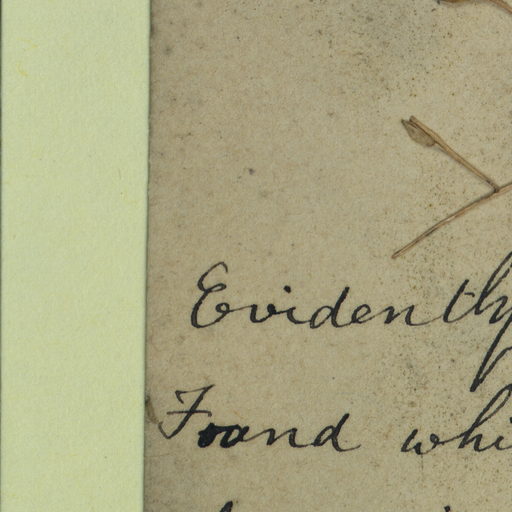 Evidently
Found whi